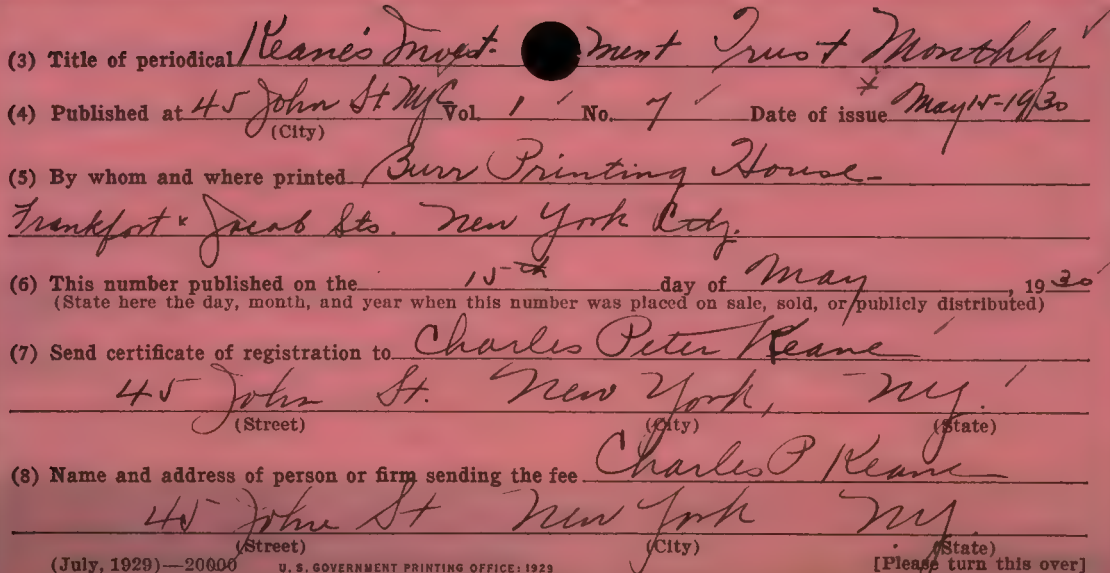 (3) Title of periodical Keane's Invest- ment Trust Monthly
(4) Published at 45 John St NYC Vol. 1 No. 7 Date of issue May 15-1930
(City)
(5) By whom and where printed Burr Printing House-
Frankfort & Jacob Sts. New York City.
(6) This number published on the 15th day of May, 1930
(State here the day, month, and year when this number was placed on sale, sold, or publicly distributed)
(7) Send certificate of registration to Charles Peter Keane
45 John St. New York, NY.
(Street) (City) (State)
(8) Name and address of person or firm sending the fee Charles P Keane
45 John St New York NY.
(Street) (City) (State)
(July, 1929)—20000 U. S. GOVERNMENT PRINTING OFFICE: 1929 [Please turn this over]